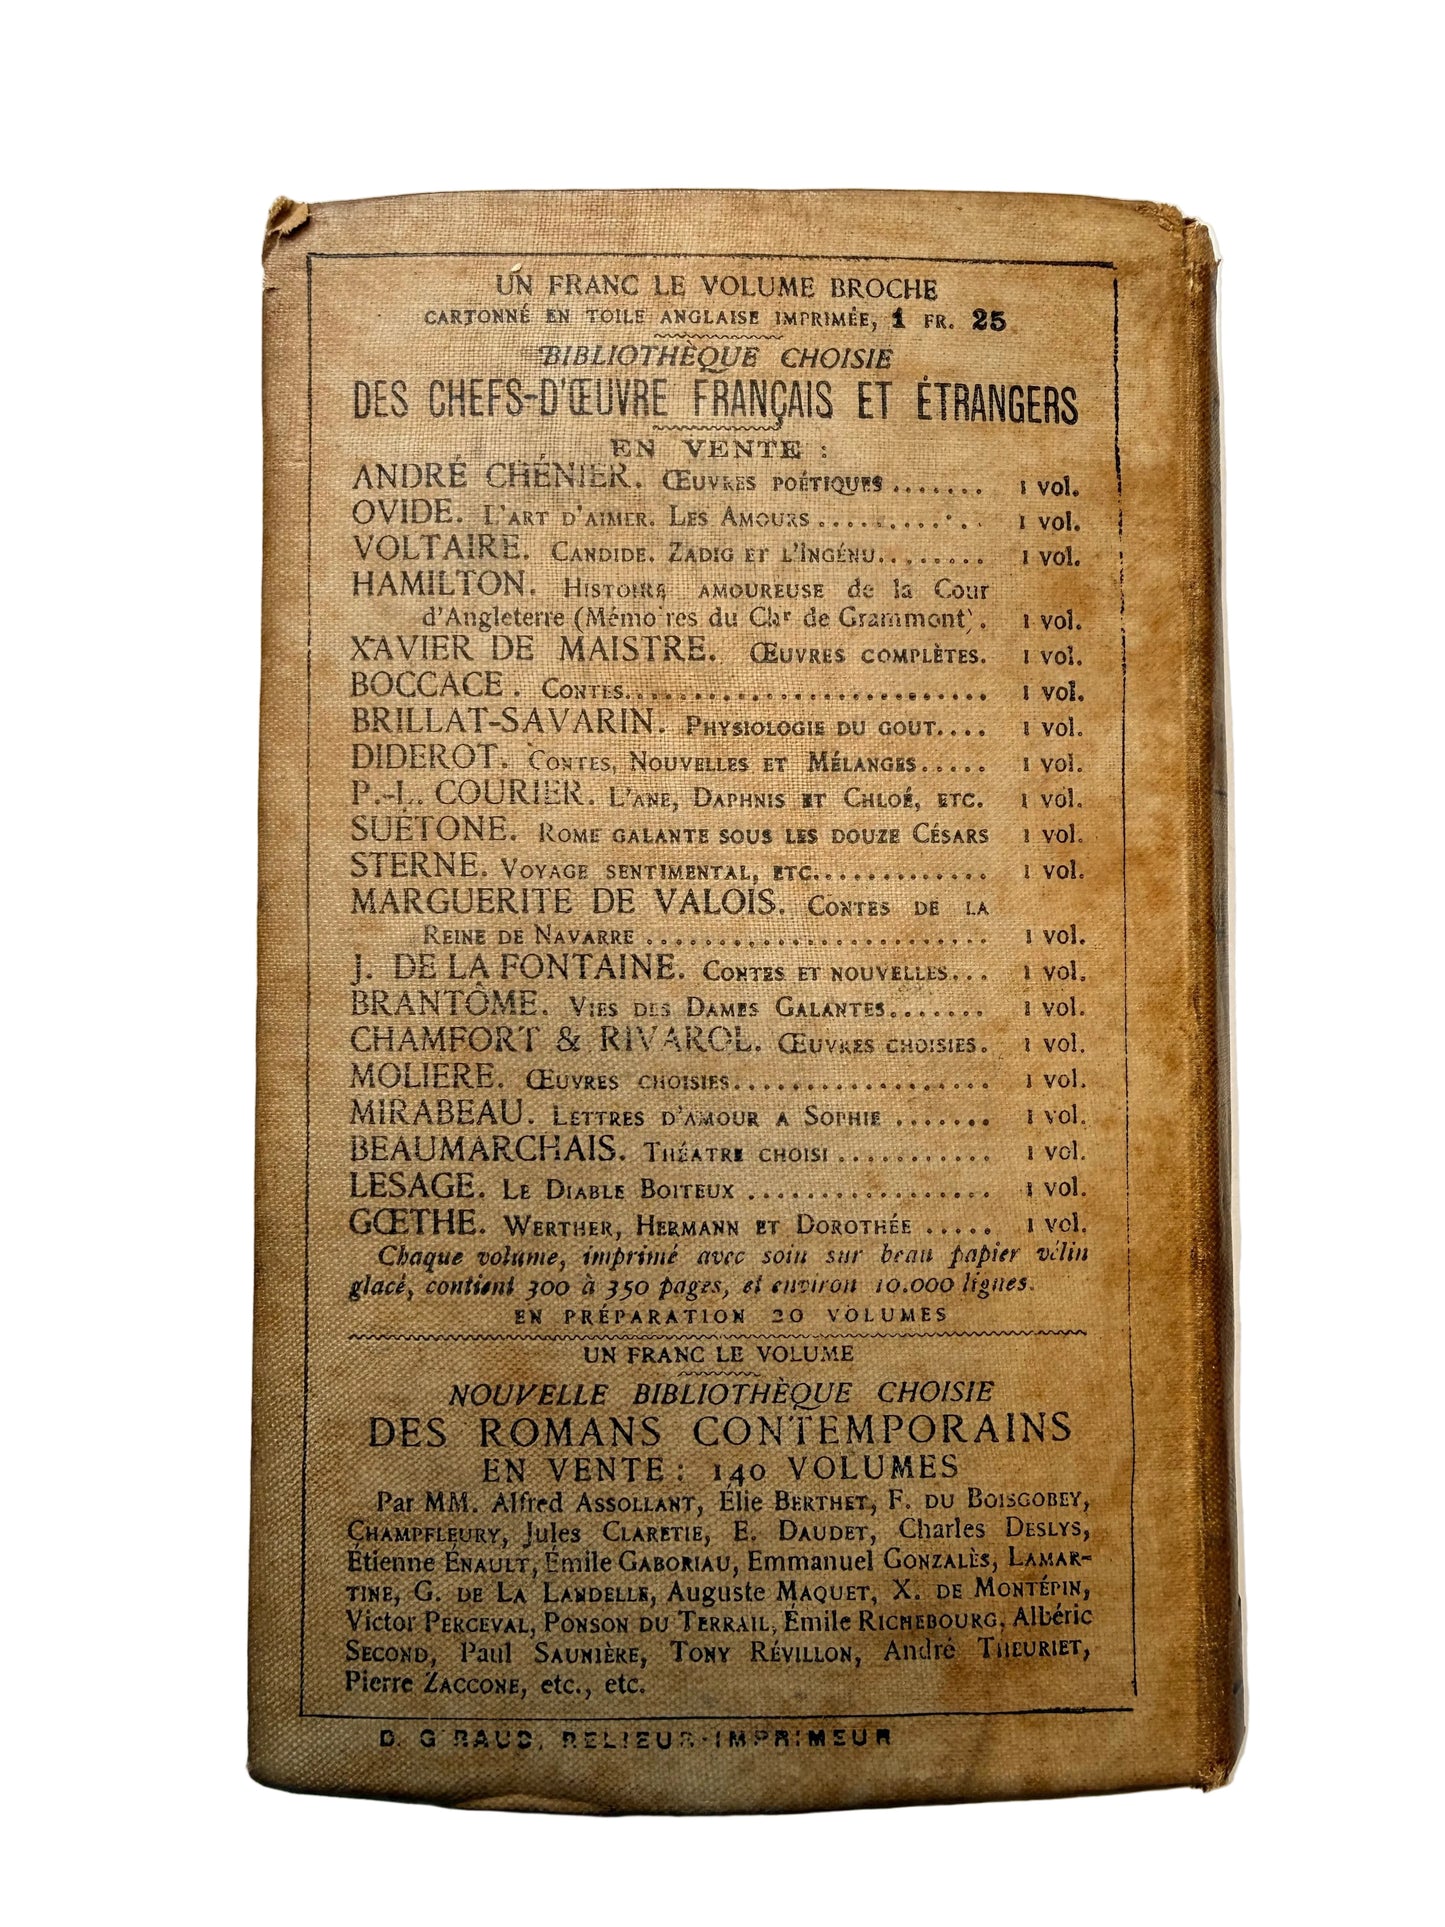 UN FRANC LE VOLUME BROCHE
CARTONNÉ EN TOILE ANGLAISE IMPRIMÉE, 1 FR. 25
BIBLIOTHÈQUE CHOISIE
DES CHEFS-D'ŒUVRE FRANÇAIS ET ÉTRANGERS
EN VENTE :
ANDRÉ CHÉNIER. ŒUVRES POÉTIQUES ....... 1 vol.
OVIDE. L'ART D'AIMER. LES AMOURS............ 1 vol.
VOLTAIRE. CANDIDE. ZADIG ET L'INGÉNU........ 1 vol.
HAMILTON. HISTOIRE AMOUREUSE de la Cour
d'Angleterre (Mémoires du Chr de Grammont). 1 vol.
XAVIER DE MAISTRE. ŒUVRES COMPLÈTES. 1 vol.
BOCCACE. CONTES.......................... 1 vol.
BRILLAT-SAVARIN. PHYSIOLOGIE DU GOUT.... 1 vol.
DIDEROT. CONTES, NOUVELLES ET MÉLANGES..... 1 vol.
P.-L. COURIER. L'ANE, DAPHNIS ET CHLOÉ, ETC. 1 vol.
SUÉTONE. ROME GALANTE SOUS LES DOUZE CÉSARS 1 vol.
STERNE. VOYAGE SENTIMENTAL, ETC............. 1 vol.
MARGUERITE DE VALOIS. CONTES DE LA
REINE DE NAVARRE ........................ 1 vol.
J. DE LA FONTAINE. CONTES ET NOUVELLES... 1 vol.
BRANTÔME. VIES DES DAMES GALANTES....... 1 vol.
CHAMFORT & RIVAROL. ŒUVRES CHOISIES. 1 vol.
MOLIERE. ŒUVRES CHOISIES.................. 1 vol.
MIRABEAU. LETTRES D'AMOUR A SOPHIE ....... 1 vol.
BEAUMARCHAIS. THÉATRE CHOISI ........... 1 vol.
LESAGE. LE DIABLE BOITEUX ................. 1 vol.
GŒTHE. WERTHER, HERMANN ET DOROTHÉE ..... 1 vol.
Chaque volume, imprimé avec soin sur beau papier vélin
glacé, contient 300 à 350 pages, et environ 10.000 lignes.
EN PRÉPARATION 20 VOLUMES
UN FRANC LE VOLUME
NOUVELLE BIBLIOTHÈQUE CHOISIE
DES ROMANS CONTEMPORAINS
EN VENTE : 140 VOLUMES
Par MM. Alfred ASSOLLANT, Élie BERTHET, F. DU BOISGOBEY,
CHAMPFLEURY, Jules CLARETIE, E. DAUDET, Charles DESLYS,
Étienne ÉNAULT, Émile GABORIAU, Emmanuel GONZALÈS, LAMAR-
TINE, G. DE LA LANDELLE, Auguste MAQUET, X. DE MONTÉPIN,
Victor PERCEVAL, PONSON DU TERRAIL, Émile RICHEBOURG, Albéric
SECOND, Paul SAUNIÈRE, TONY RÉVILLON, André THEURIET,
Pierre ZACCONE, etc., etc.
D. GIRAUD, RELIEUR-IMPRIMEUR